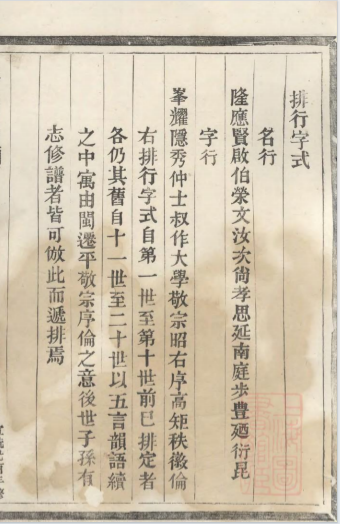 排行字式
名行
隆應賢啟伯榮文汝次尙孝思延南庭步豊廼衍昆
字行
峯耀隱秀仲士叔作大學敬宗昭右序高矩秩徽倫
右排行字式自第一世至第十世前已排定者
各仍其舊自十一世至二十世以五言韻語續
之中寓由閩遷平敬宗序倫之意後世子孫有
志修譜者皆可倣此而遞排焉